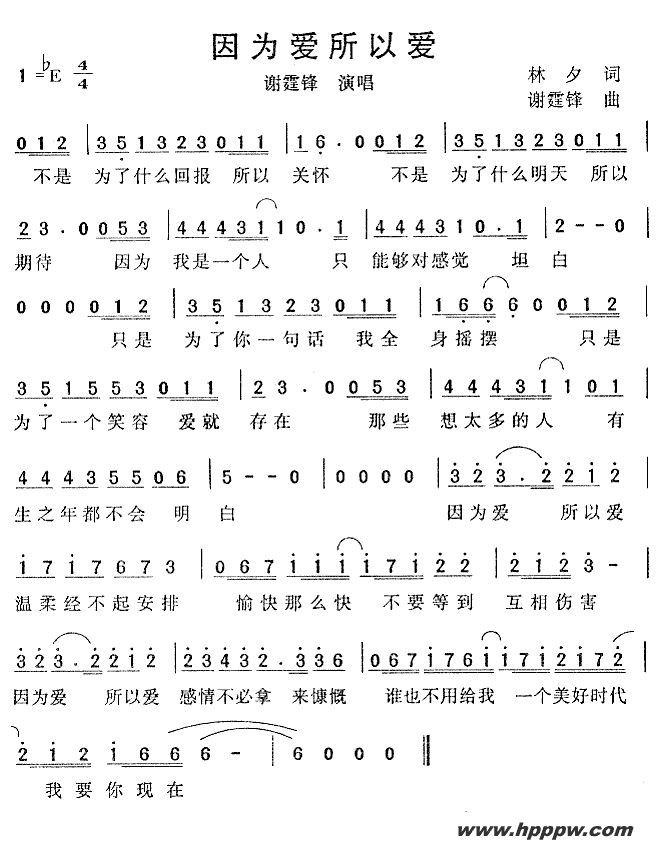 因为爱所以爱
1=♭E 4/4
谢霆锋 演唱
林夕 词
谢霆锋 曲
0 1 2 | 3 5 1 3 2 3 0 1 1 | 1 6 · 0 0 1 2 | 3 5 1 3 2 3 0 1 1 |
不是 为了什么回报 所以 关怀 不是 为了什么明天 所以
2 3 · 0 0 5 3 | 4 4 4 3 1 1 0 · 1 | 4 4 4 3 1 0 · 1 | 2 - - 0 |
期待 因为 我是一个人 只 能够对感觉 坦 白
0 0 0 0 1 2 | 3 5 1 3 2 3 0 1 1 | 1 6 6 6 0 0 1 2 |
只是 为了你一句话 我全 身摇摆 只是
3 5 1 5 5 3 0 1 1 | 2 3 · 0 0 5 3 | 4 4 4 3 1 1 0 1 |
为了一个笑容 爱就 存在 那些 想太多的人 有
4 4 4 3 5 5 0 6 | 5 - - 0 | 0 0 0 0 | 3 2 3 · 2 2 1 2 |
生之年都不会 明 白 因为爱 所以爱
1 7 1 7 6 7 3 | 0 6 7 1 1 1 1 7 1 2 2 | 2 1 2 3 - |
温柔经不起安排 愉快那么快 不要等到 互相伤害
3 2 3 · 2 2 1 2 | 2 3 4 3 2 · 3 3 6 | 0 6 7 1 7 6 1 1 7 1 2 1 7 2 |
因为爱 所以爱 感情不必拿 来慷慨 谁也不用给我 一个美好时代
2 1 2 1 6 6 6 - | 6 0 0 0 ‖
我要你现在
www.hpppw.com